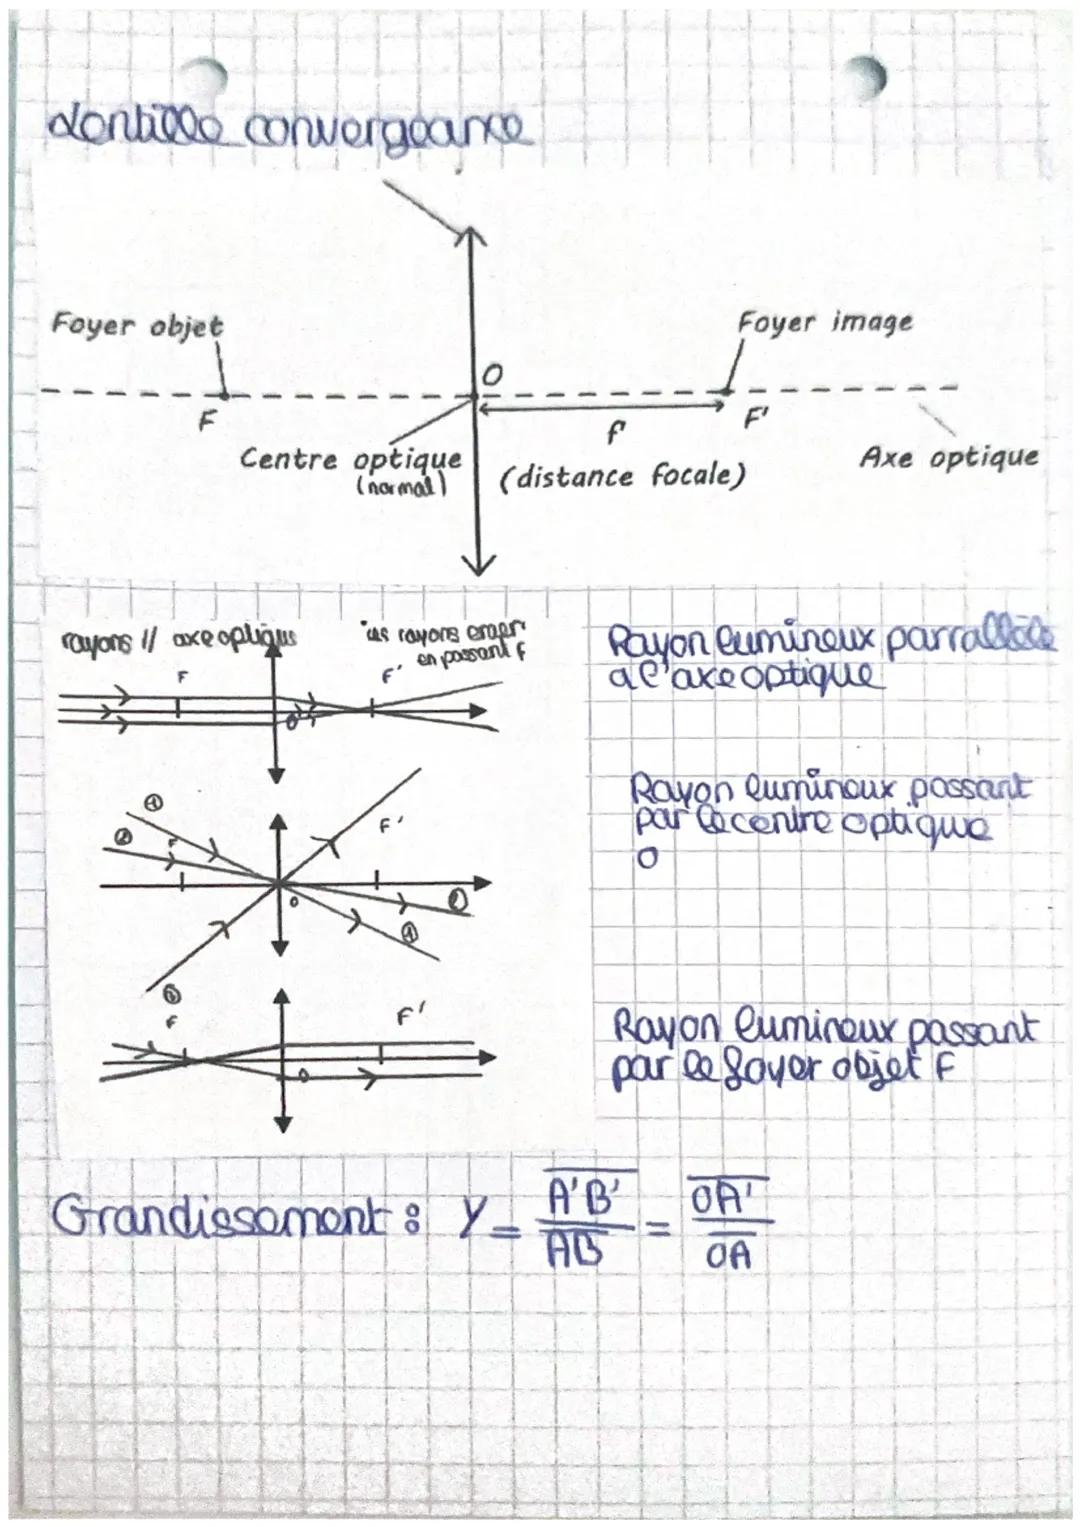 Lentille convergeance
Foyer objet
Foyer image
O
F
F'
f'
Centre optique
(normal)
(distance focale)
Axe optique
rayons // axe optiques
les rayons emer
en passant f
Rayon lumineux parrallèle
a l'axe optique
F
F'
O
Rayon lumineux passant
par le centre optique
O
①
②
F
F'
O
②
①
③
Rayon lumineux passant
par le foyer objet F
F
F'
O
Grandissement : γ = A'B' / AB = OA' / OA